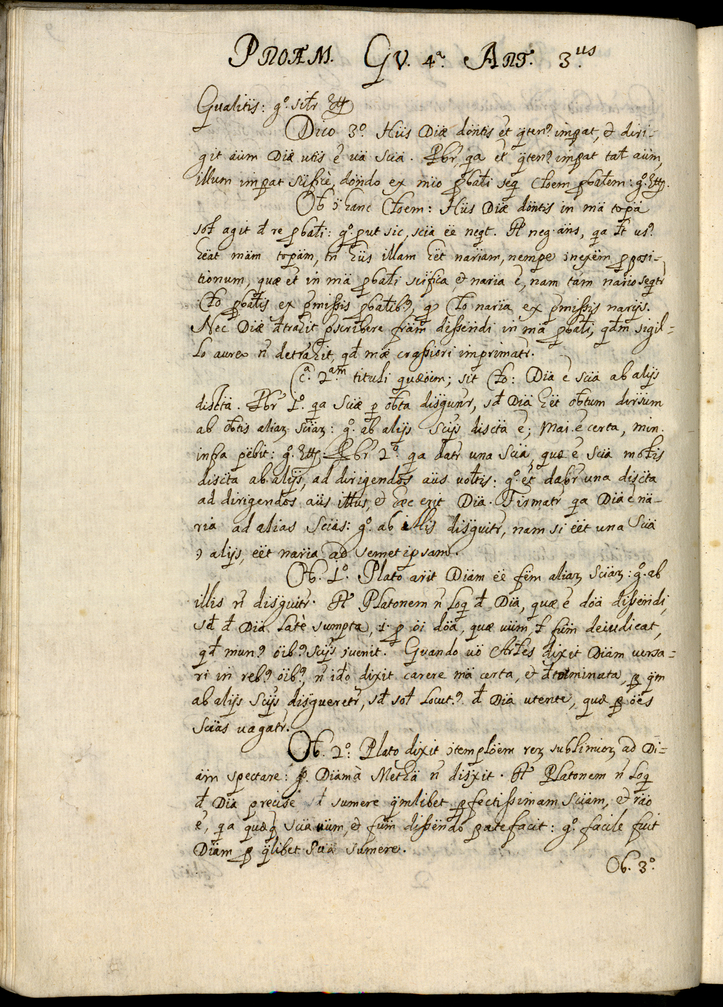 PROŒM. QV. 4ª. ART. 3.us
Qualitis: gº. sitr Ett
Dico 3º. Hüs Diæ dōntis ēt qtenꝰ impat, et diri-
git āūm Diæ utis ē uā Sciā. Pbr, qa ēt qtenꝰ impat talē āūm,
illum impat Scificè, dōndo ex mīo pbali seq Cloem pbalem: gº. Ett.
Ob. 1º. hanc Cloem: Hüs Diæ dōntis in mā topā
sol agit d re pbali: gº. put sic, scia ēē neqt. R. neg. āns, qa lt usꝰ
hēat mām topām, tn hüs illam hēt nāriam, nempe inexēm pposi-
tionum, quæ ēt in mā pbali scifica et naria ē, nam tām nario seqtr
Clo pbalis ex pmissis pbalibꝰ, q Clo naria ex pmissis narijs.
Nec Diæ dtrahit pscribere fram disserēdi in mā pbali, qdm sigil-
lo aureo n detrahit, qd mæ crassiori imprimatr.
Cª. 2.am tituli quæōem; sit Clo: Dia ē scia ab alijs
discta. Pbr 1º. qa Sciæ p obta disgunr, sd Dia hēt obtum dirsum
ab obtis aliaꝝ sciaꝝ: gº. ab alijs Scijs discta ē; Mai. ē certa, min.
infra pēbit: gº. Ett. Pbr 2º. qa datr una Scia, quæ ē scia molis
discta ab alijs, ad dirigendos āūs voltis: gº. ēt dabr una discta
ad dirigendos āūs illtus, et hæc erit Dia. Firmatr qa Dia ē na-
ria ad alias Scias: gº. ab illis disguitr, nam si ēēt una Scia
ɔ alijs, ēēt naria ad semetipsam.
Ob. 1º. Plato arit Diam ēē fēm aliaꝝ Sciaꝝ: gº. ab
illis n disguitr. R. Platonem n loq d Dia, quæ ē dōā disserēdi,
sd d Dia latè sumpta, i. p oi dōā, quæ uūm, t fūm deiudicat,
qd munꝰ oibꝰ scijs ɔuenit. Quando uō Arles dixit Diam versa-
ri in rebꝰ oibꝰ, n idō dixit carere mā certa, et dterminata, p qm
ab alijs Scijs disgueretr, sd sol locutꝰ d Dia utente, quæ p oēs
Scias uagatr.
Ob. 2º. Plato dixit ɔtemplōem reꝝ sublimioꝝ ad Di-
am spectare: g Diam à Metha n disjxit. R. Platonem n loq
d Dia precisè sd sumere qmlibet pfectissimam Sciam, et rāo
ē, qa quæq scia uūm, et fūm disserēdo patefacit: gº. facile fuit
Diam p qlibet Scia sumere.
Ob. 3º.